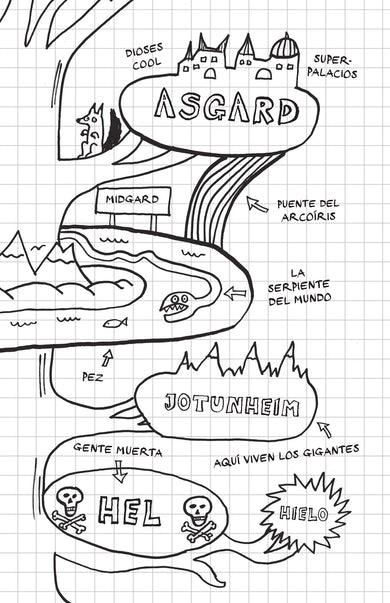 DIOSES
COOL
SUPER-
PALACIOS
ASGARD
MIDGARD
PUENTE DEL
ARCOÍRIS
LA
SERPIENTE
DEL MUNDO
PEZ
JOTUNHEIM
AQUÍ VIVEN LOS GIGANTES
GENTE MUERTA
HEL
HIELO